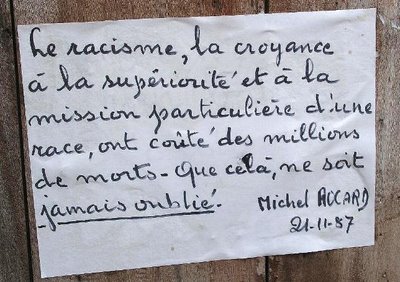 Le racisme, la croyance
à la supériorité et à la
mission particulière d'une
race, ont coûté des millions
de morts - que celà, ne soit
jamais oublié.
Michel ACCARD
21-11-87